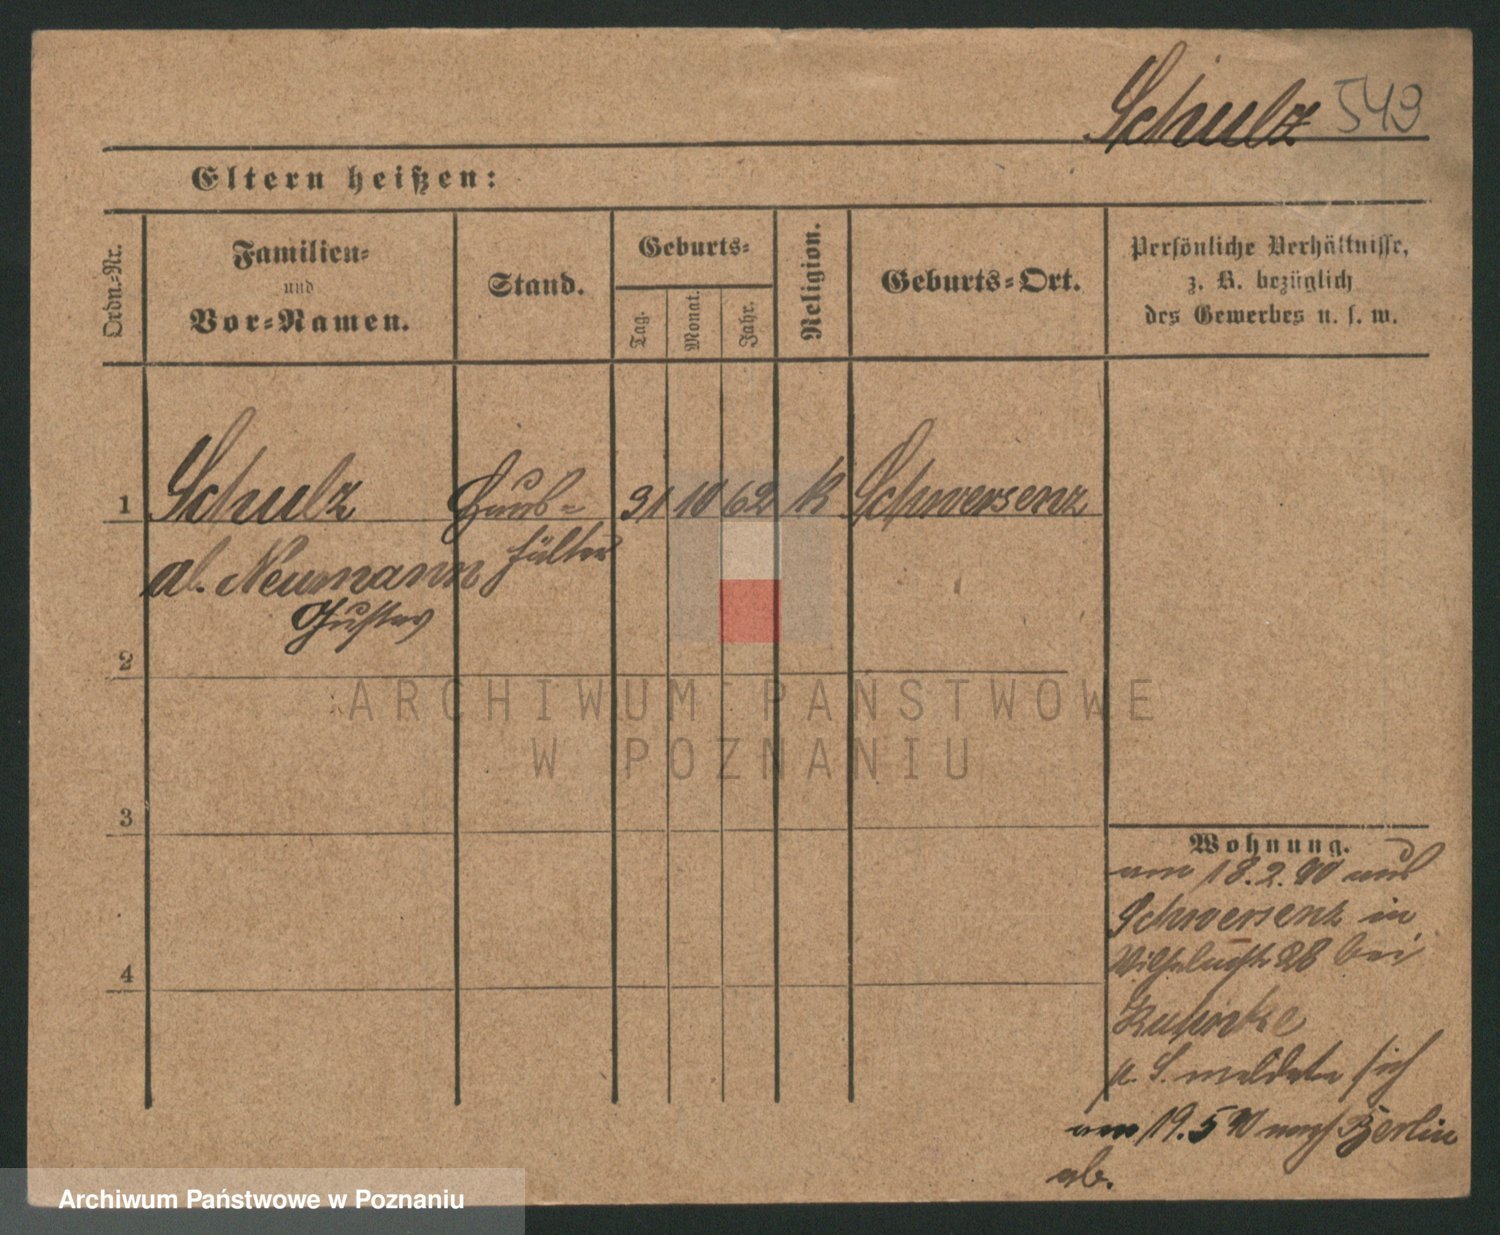 Schulz 549
Eltern heißen:
Ordn.-Nr.
Familien-
und
Vor-Namen.
Stand.
Geburts-
Tag.
Monat.
Jahr.
Religion.
Geburts-Ort.
Persönliche Verhältnisse,
z. B. bezüglich
des Gewerbes u. s. w.
1 Schulz Haus- 31 10 62 K Schwersenz
al. Neumann hälter
Gustav
2
3
4
Wohnung.
am 18.2.90 aus
Schwersenz in
Wilhelmstr 28 bei
p. S. meldete sich
am 19.5 90 nach Berlin
ab.
ARCHIWUM PAŃSTWOWE
W POZNANIU
Archiwum Państwowe w Poznaniu